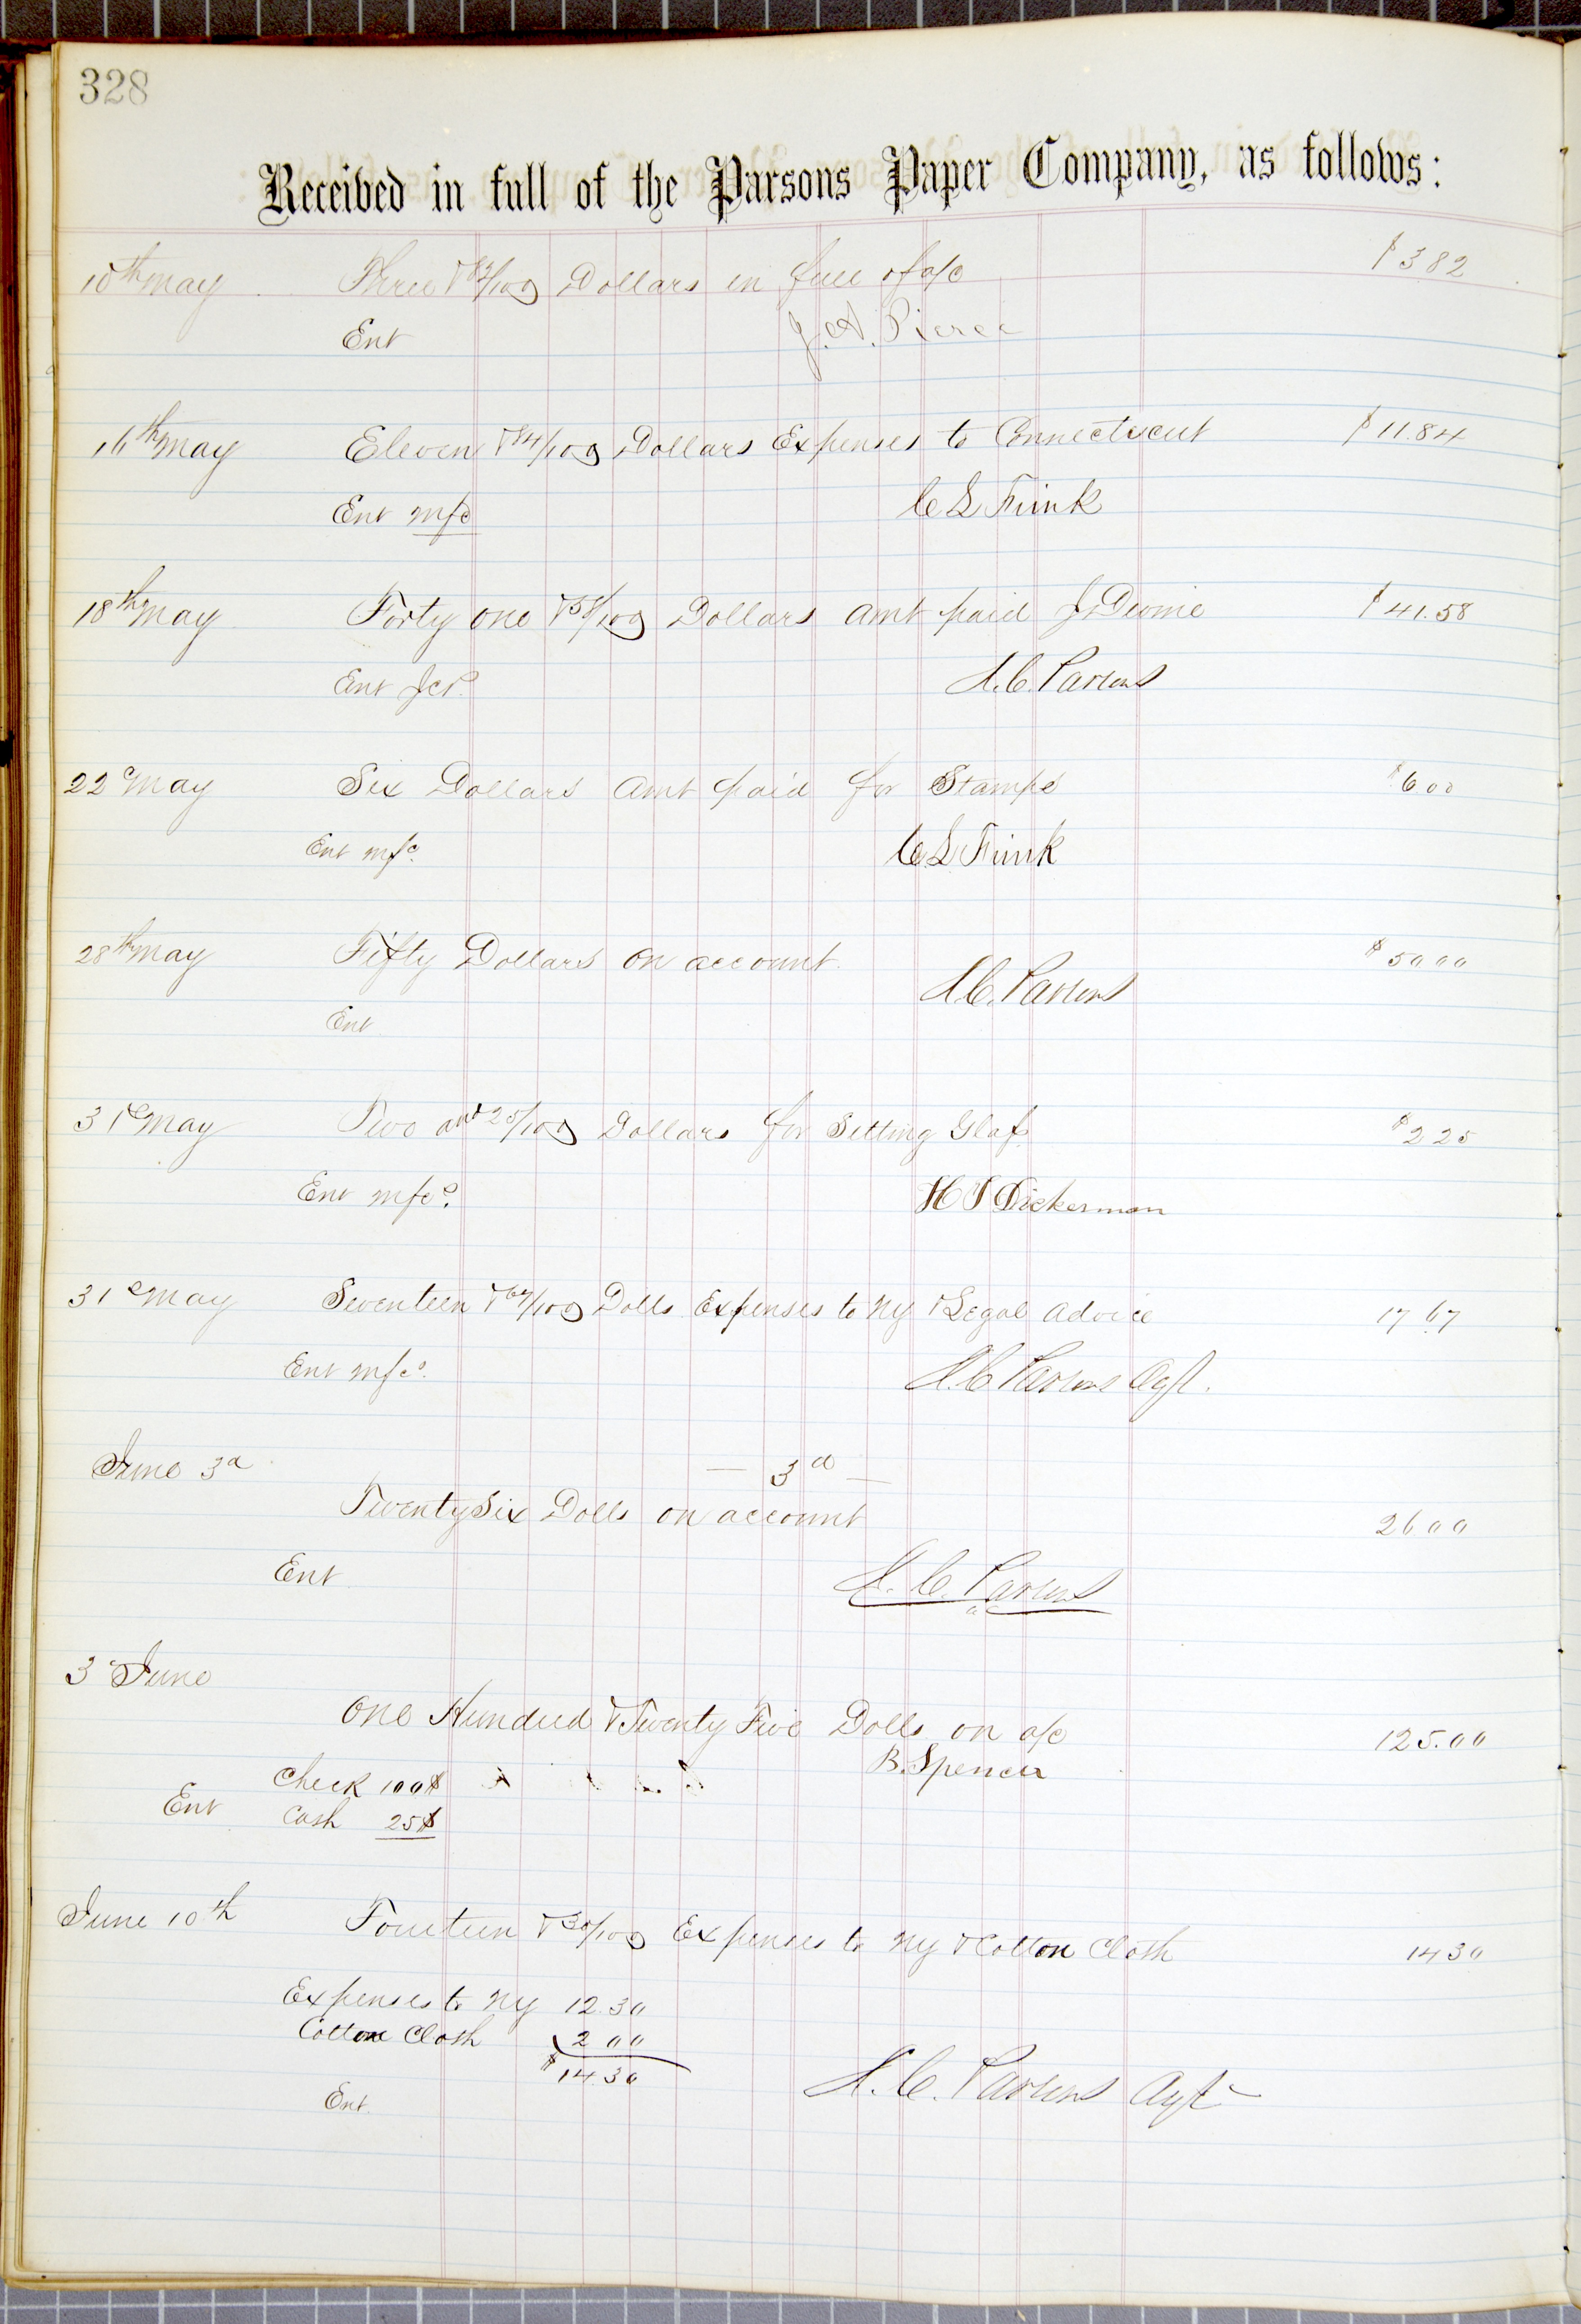 328
Received in full of the Parsons Paper Company, as follows:
10th May Three & 82/100 Dollars in full of a/c $3 82
Ent J. A. Pierce
16th May Eleven & 84/100 Dollars Expenses to Connecticut $11.84
Ent mfc C L Frink
18th May Forty one & 58/100 Dollars Amt paid J $41.58
Ent J. C. Parsons
22d May Six Dollars Amt paid for Stamps $6.00
Ent mfc. C L Frink
28th May Fifty Dollars on account. $50 00
J. C. Parsons
Ent
31st May Two and 25/100 Dollars for Setting Glass $2 25
Ent mfc. H S Dickerman
31st May Seventeen & 67/100 Dolls Expenses to NY & Legal Advice 17.67
Ent mfc. J. C Parsons Agt.
June 3d — 3d —
Twenty Six Dolls on account 26 00
Ent J. C. Parsons
3d June
One Hundred & Twenty Five Dolls on a/c 125.00
B. Spencer
Check 100$
Ent Cash 25$
June 10th Fourteen & 30/100 Expenses to NY & Cotton Cloth 14 30
Expenses to NY 12.30
Cotton Cloth 2 00
$14.30
J. C. Parsons Agt
Ent.